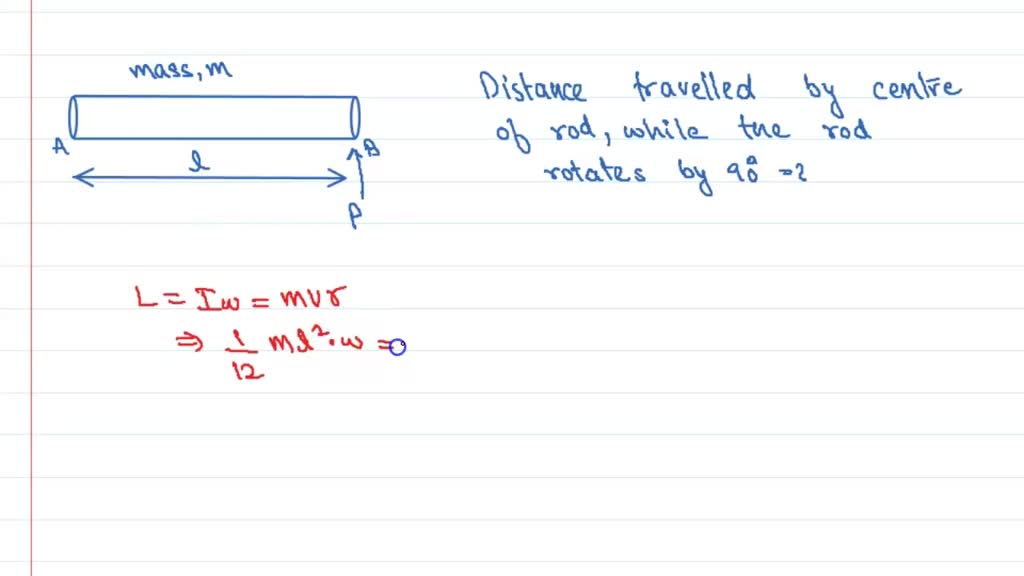 mass, m
A
B
l
P
Distance travelled by centre
of rod, while the rod
rotates by 90° = ?
L = Iω = mvr
⇒ 1/12 ml². ω =